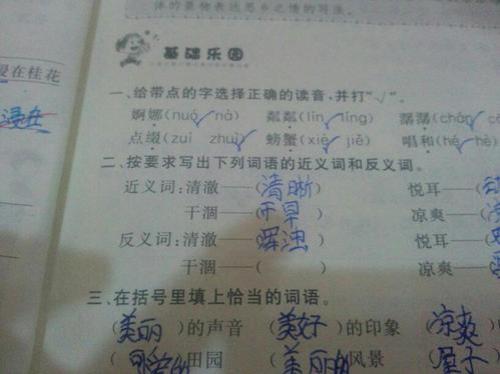 体的景物表达思乡之情的写法。
基础乐园
浸在桂花
浸在
一、给带点的字选择正确的读音,并打“√”。
婀娜(nuó√ nà) 粼粼(lín√ líng) 潺潺(chán
点缀(zuì zhuì√) 螃蟹(xiè√ jiě) 唱和(hé√ hè)
二、按要求写出下列词语的近义词和反义词。
近义词:清澈——(清晰) 悦耳——
干涸——(干旱) 凉爽——
反义词:清澈——(浑浊) 悦耳——
干涸——( ) 凉爽——
三、在括号里填上恰当的词语。
(美丽)的声音 (美好)的印象 (凉爽
田园 (美丽的 风景 (屋子